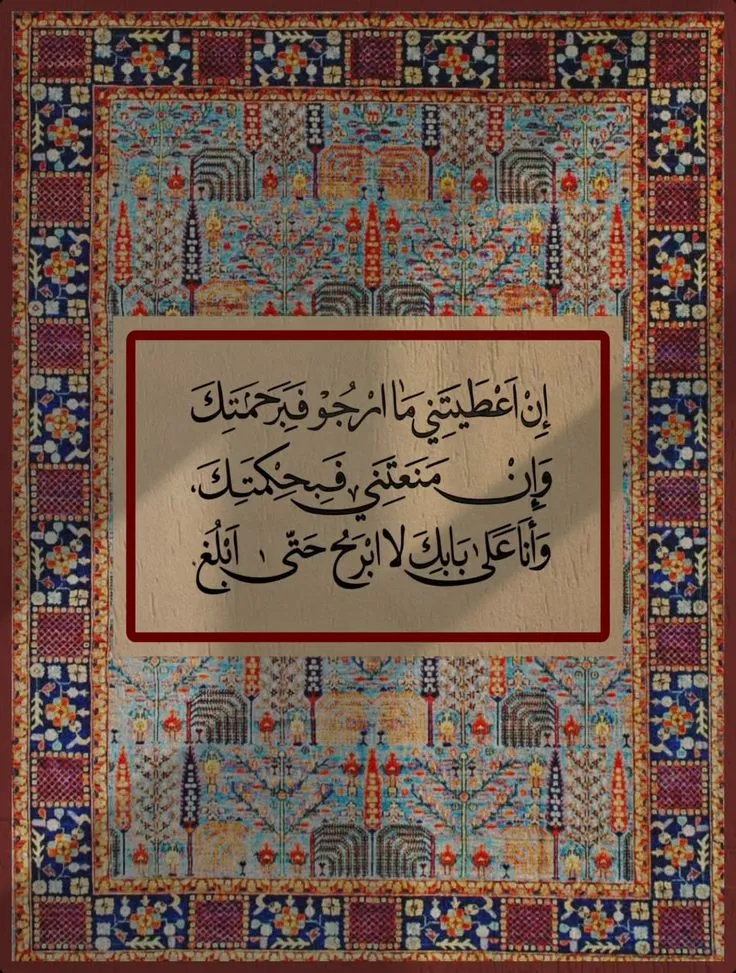 إِنْ اَعْطَيتَنِي مَا ارْجُوْ فَبَرَحمَتِكَ
وَإِنْ مَنَعتَنِي فَبِحِكمَتِكَ،
وَأَنَا عَلىٰ بَابِكَ لا ابْرَحُ حَتّىٰ اَبْلُغ